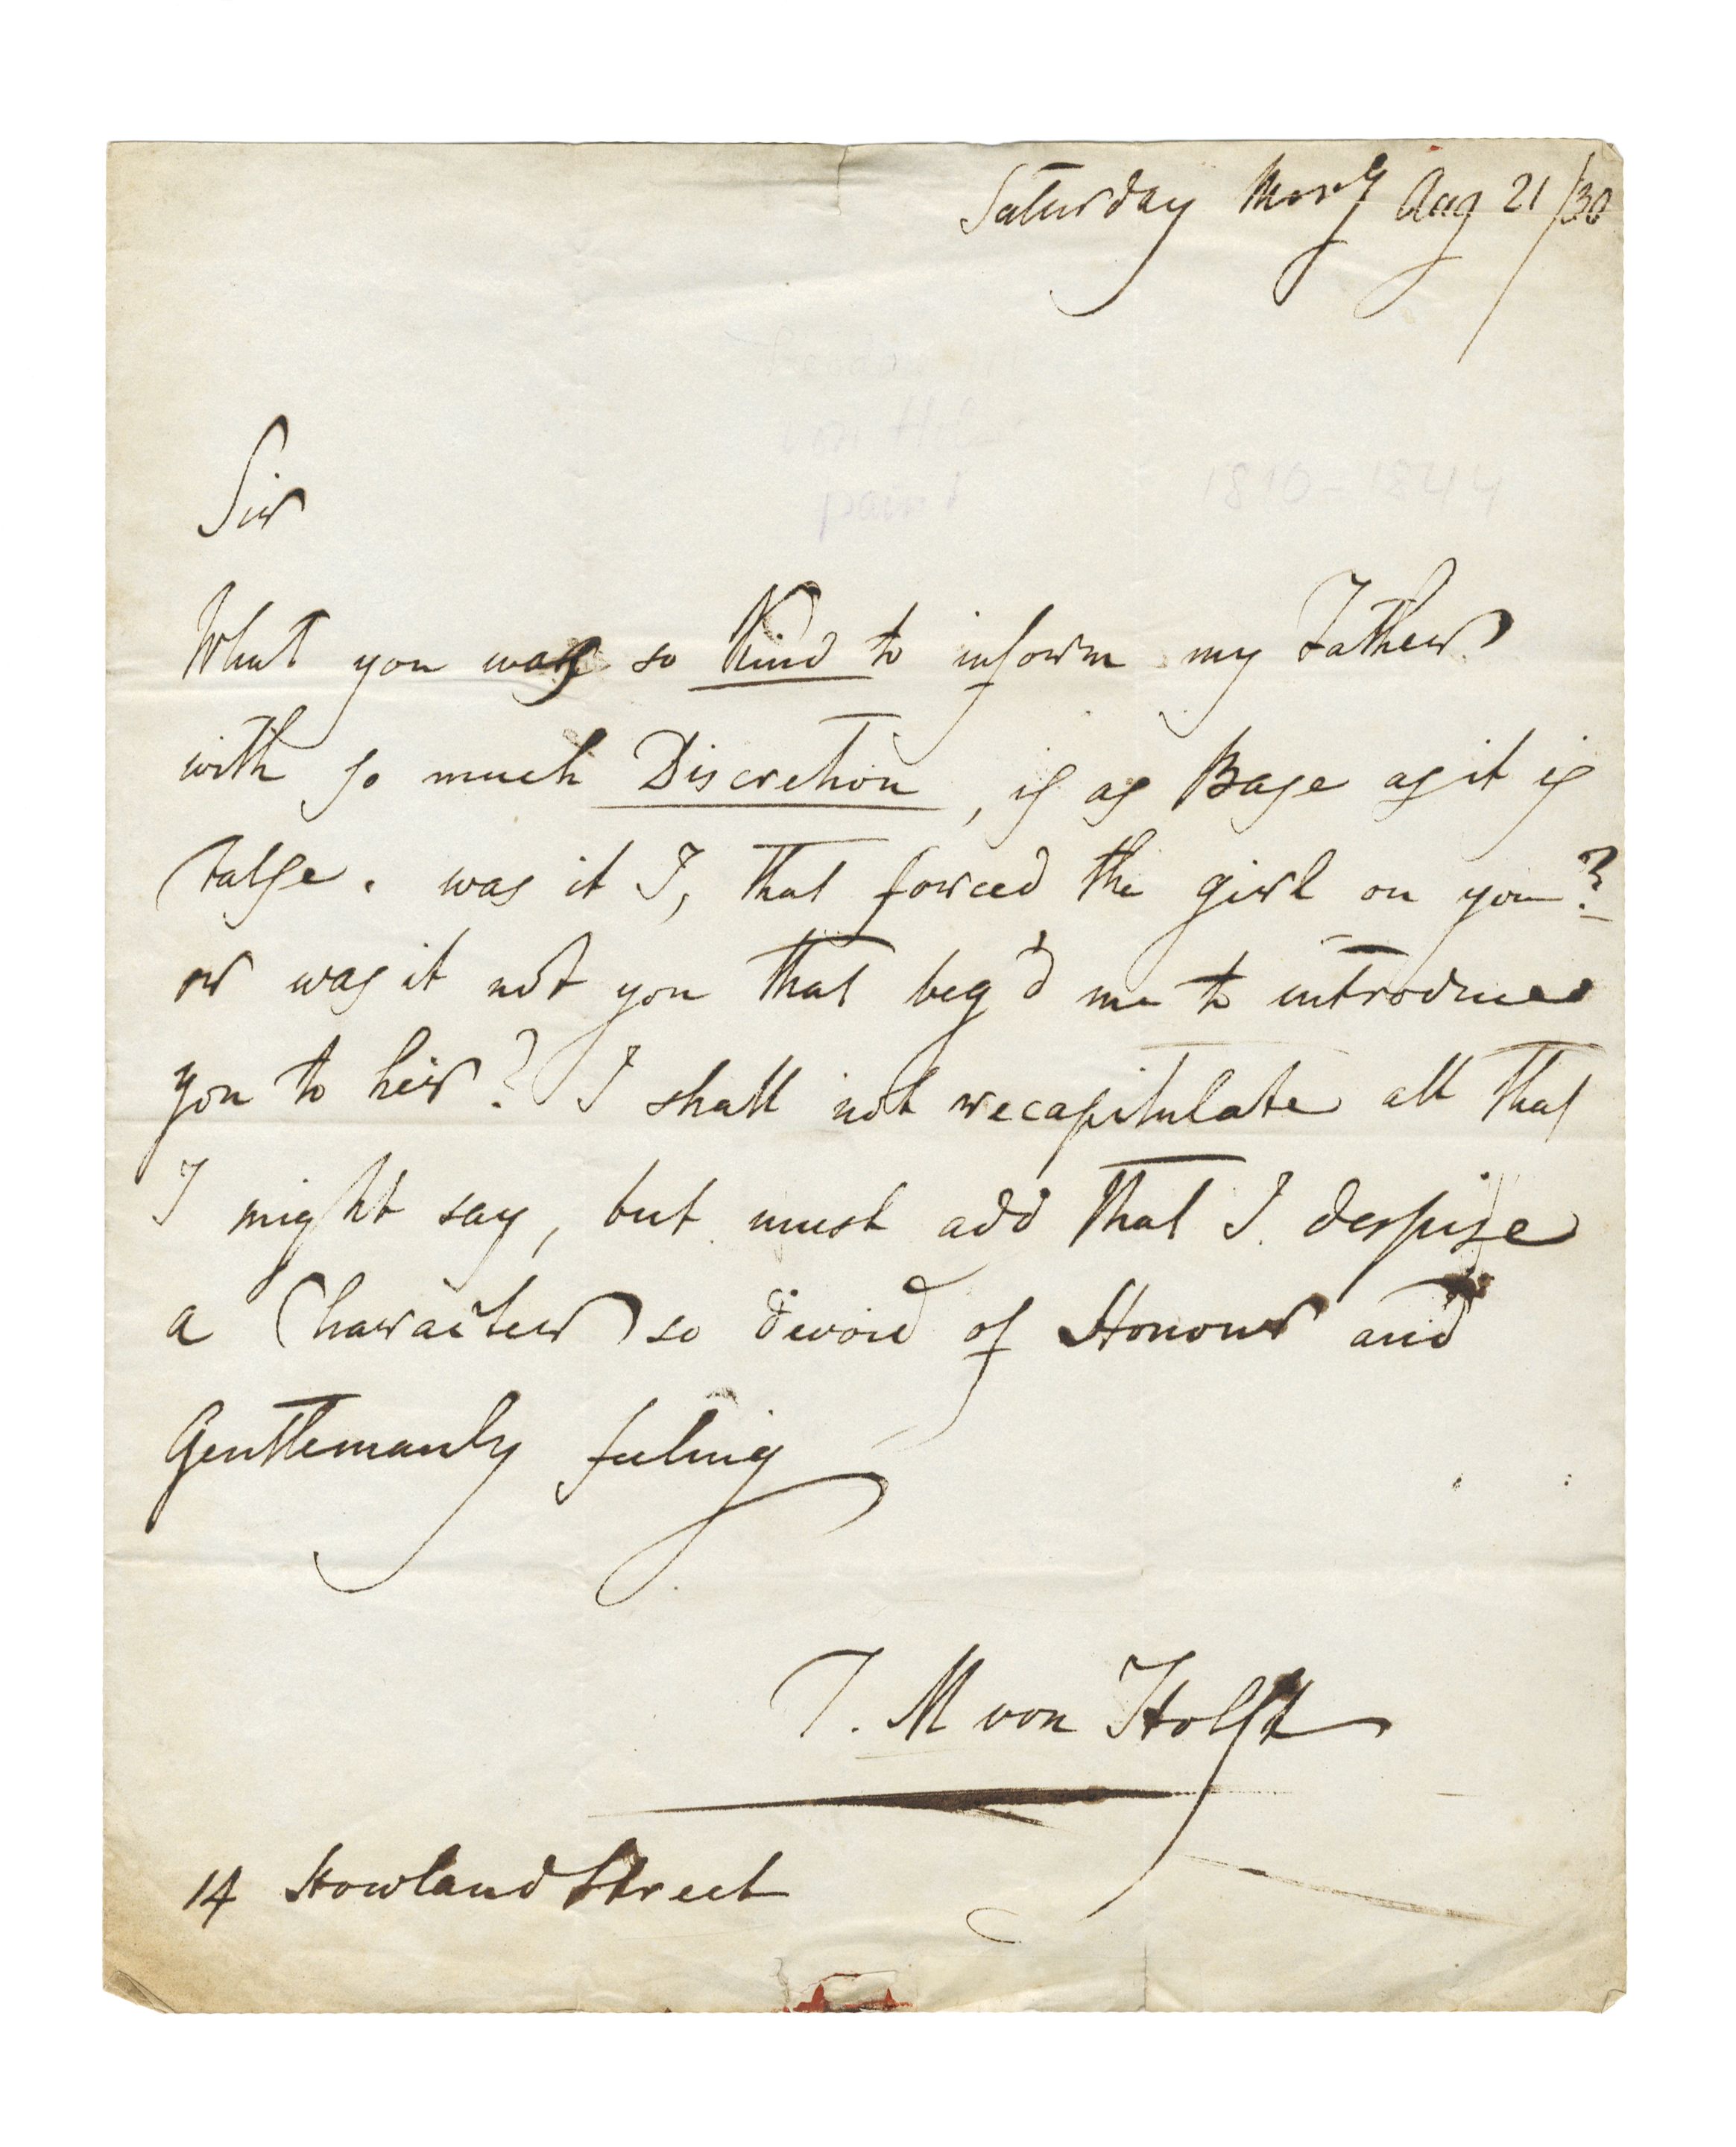 Saturday Morg Aug 21/30
Sir
What you was so Kind to inform my Father
with so much Discretion, is as Base as it is
false. was it I, that forced the girl on you?
or was it not you that beg'd me to introduce
you to her? I shall not recapitulate all that
I might say, but must add that I despise
a Character so devoid of Honour and
Gentlemanly feeling
T. M von Holst
14 Howland Street
1810-1844